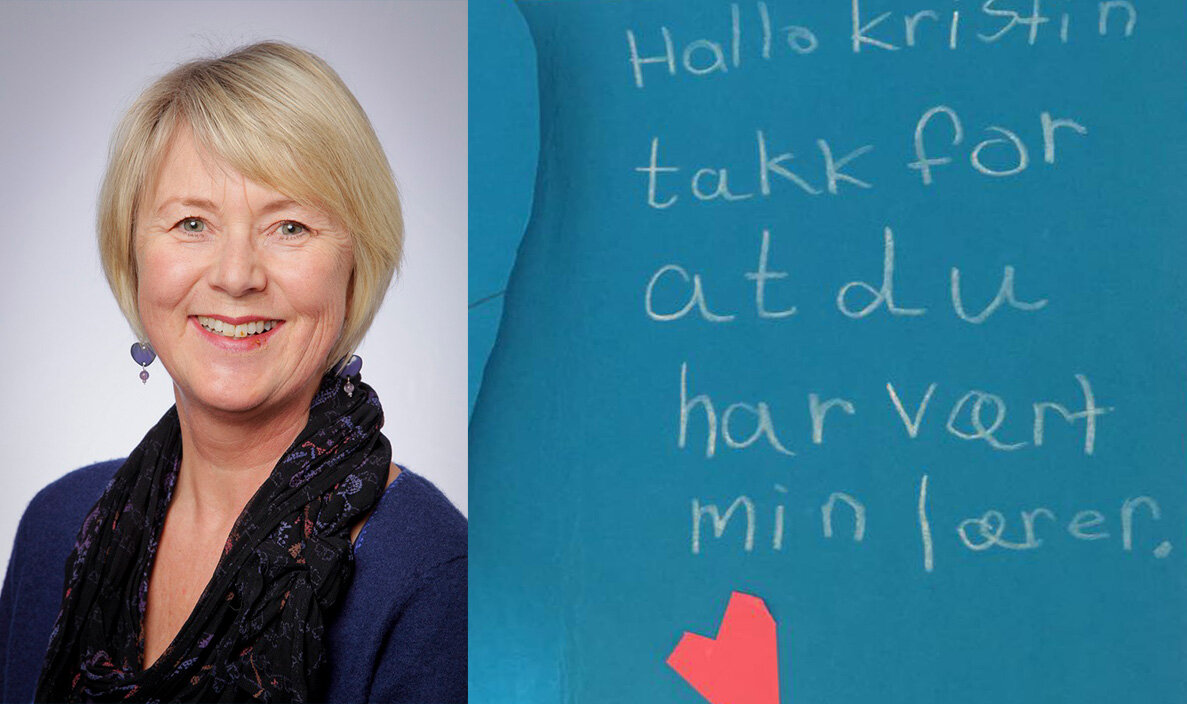 Hallo kristin
takk for
at du
har vært
min lærer.